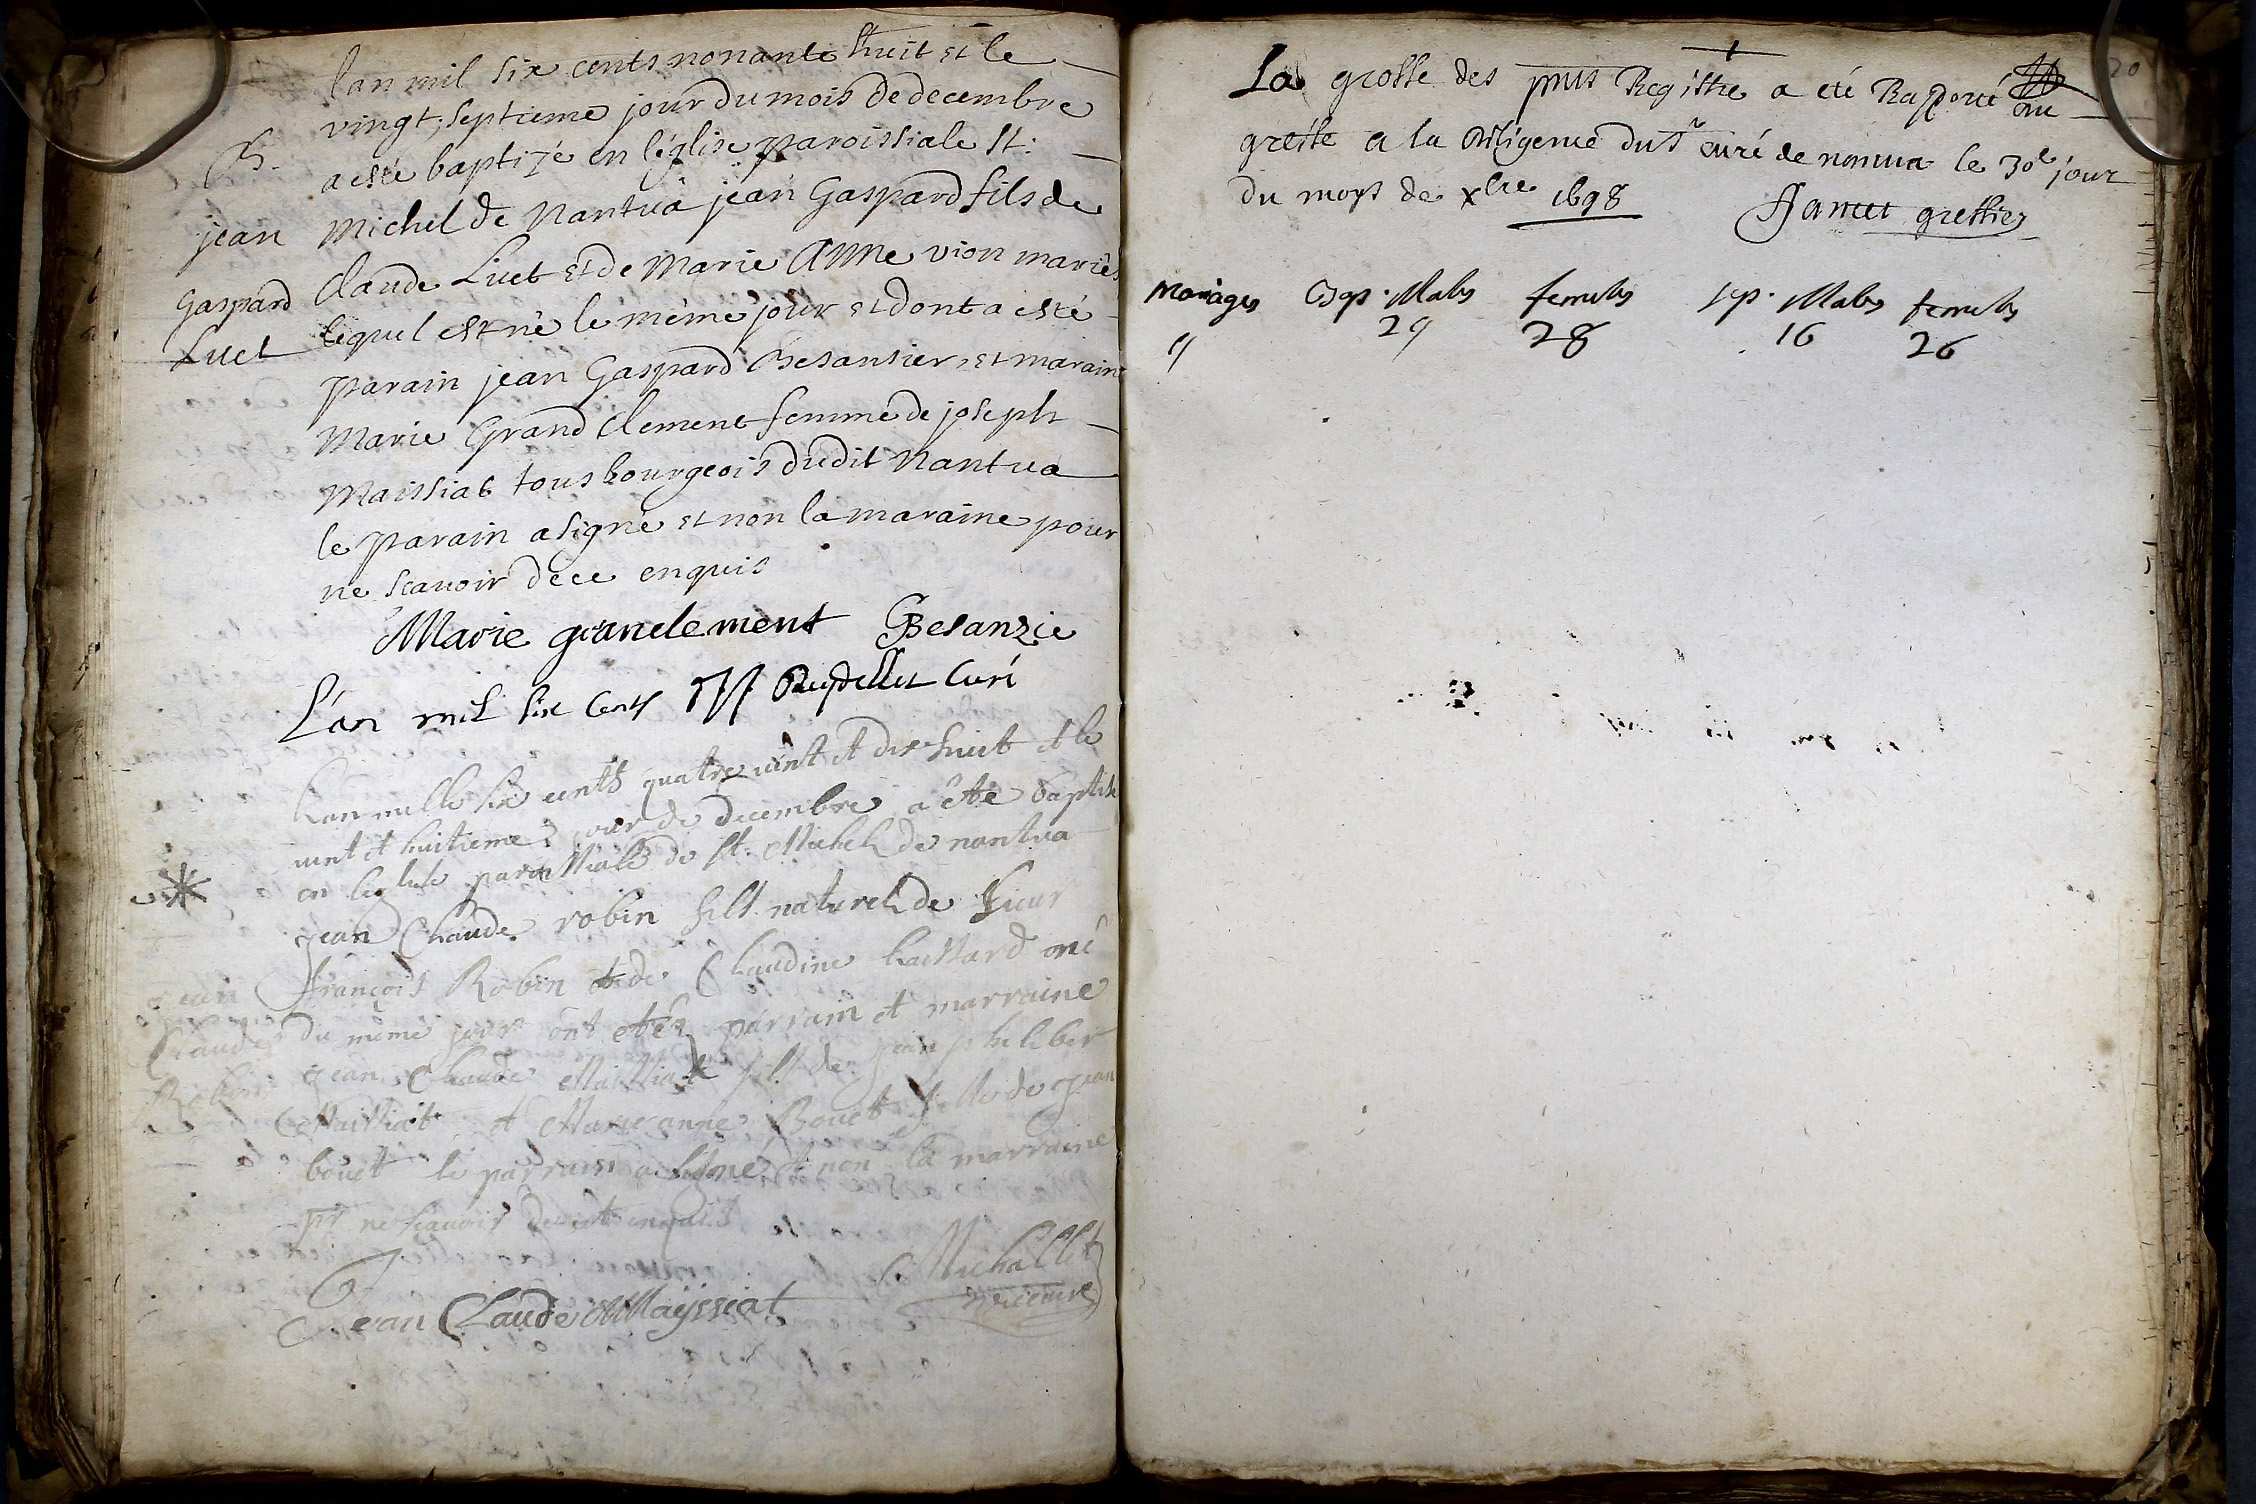 lan mil six cents nonante huit et le
vingt, septieme jour du mois de decembre
B.
a esté baptizé en leglise paroissiale st:
jean
michel de Nantua jean Gaspard fils de
Claude Livet et de Marie Anne vion mariés
Gaspard
lequel est né le même jour et dont a esté
Livet
parain jean Gaspard Besansier, et maraine
Marie Grand Clement femme de joseph
Maissiat tous bourgeois dudit Nantua
le parain a signé et non la maraine pour
ne scavoir dece enquis
Marie granclement Besanzie
L'an mil six Cents curé
Lan mille six cents quatre vint et dix huit et le
vint et huitieme jour de decembre a été baptisé
en leglise paroissiale de st. Michel de nantua
jean Claude robin fils naturel de sieur
jean
françois Robin et de Claudine né
Claude
du même jour ont etés parrain et marraine
Robin
jean Claude Maissiat fils de jean philiber
Maissiat et Marie anne Bouet fille de jean
bouet le parrain a signé et non la marraine
pr ne scavoir de ce enquis
Michallet
vicaire
Jean Claude Mayssiat
20
La grosse des pnts Registre a eté Raporté au
greffe a la diligence du Sr curé de nantua le 30e jour
du moys de xbre 1698
greffier
Mariages Bap. Males femelles sep. Males femelles
29 28 16 26